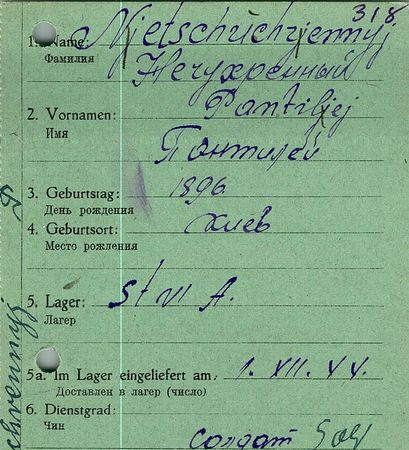 318
1. Name: Njetschuchrjennyj
Фамилия Нечухренный
2. Vornamen: Pantiljej
Имя Пантилей
3. Geburtstag: 1896
День рождения
4. Geburtsort: Хиев
Место рождения
5. Lager: St VI A.
Лагер
5a. Im Lager eingeliefert am: 1. XII. 44.
Доставлен в лагер (число)
6. Dienstgrad:
Чин солдат Sol
chrennyj P